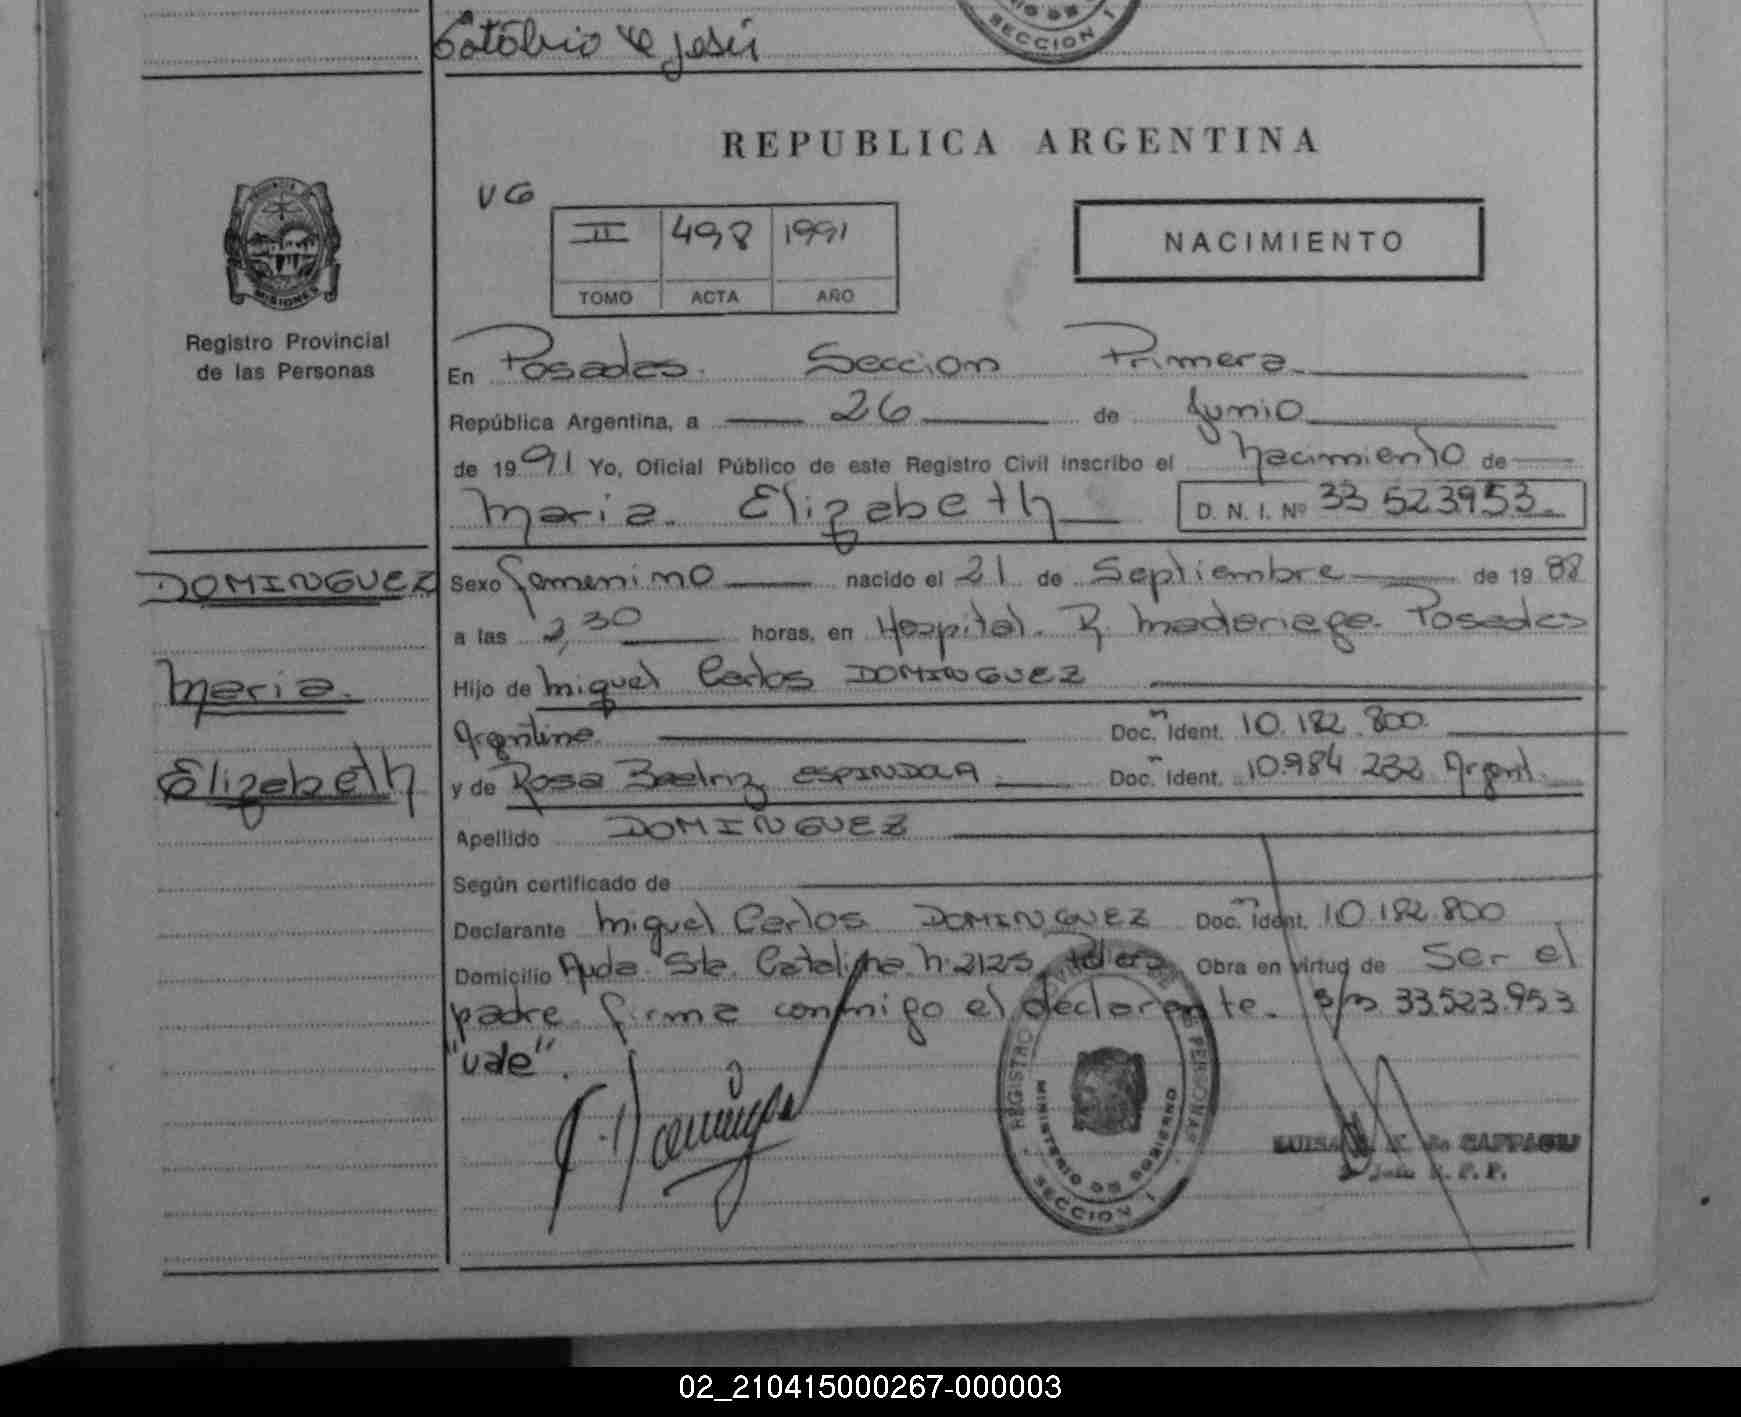 Católico de Jesús
SECCION 1
REPUBLICA ARGENTINA
VG
II 498 1991
TOMO ACTA AÑO
NACIMIENTO
PROVINCIA
MISIONES
Registro Provincial
de las Personas
En Posadas. Seccion Primera
República Argentina, a 26 de Junio
de 1991 Yo, Oficial Público de este Registro Civil inscribo el Nacimiento de
Maria. Elizabeth D. N. I. Nº 33 523953.
DOMINGUEZ
Maria.
Elizabeth
Sexo femenino nacido el 21 de Septiembre de 19 88
a las 2,30 horas, en Hospital. R. Madariaga. Posadas
Hijo de Miguel Carlos DOMINGUEZ
Argentino Doc. Ident. 10.182.800.
y de Rosa Beatriz ESPINDOLA Doc. Ident. 10.984 232 Argent.
Apellido DOMINGUEZ
Según certificado de
Declarante Miguel Carlos DOMINGUEZ Doc. Ident. 10.182.800
Domicilio Avda. Sta. Catalina n. 2125 Obra en virtud de Ser el
padre. firma conmigo el declarante. s/r 33.523.953
"vale".
REGISTRO PERSONAS
MINISTERIO DE GOBIERNO
SECCION 1
02_210415000267-000003